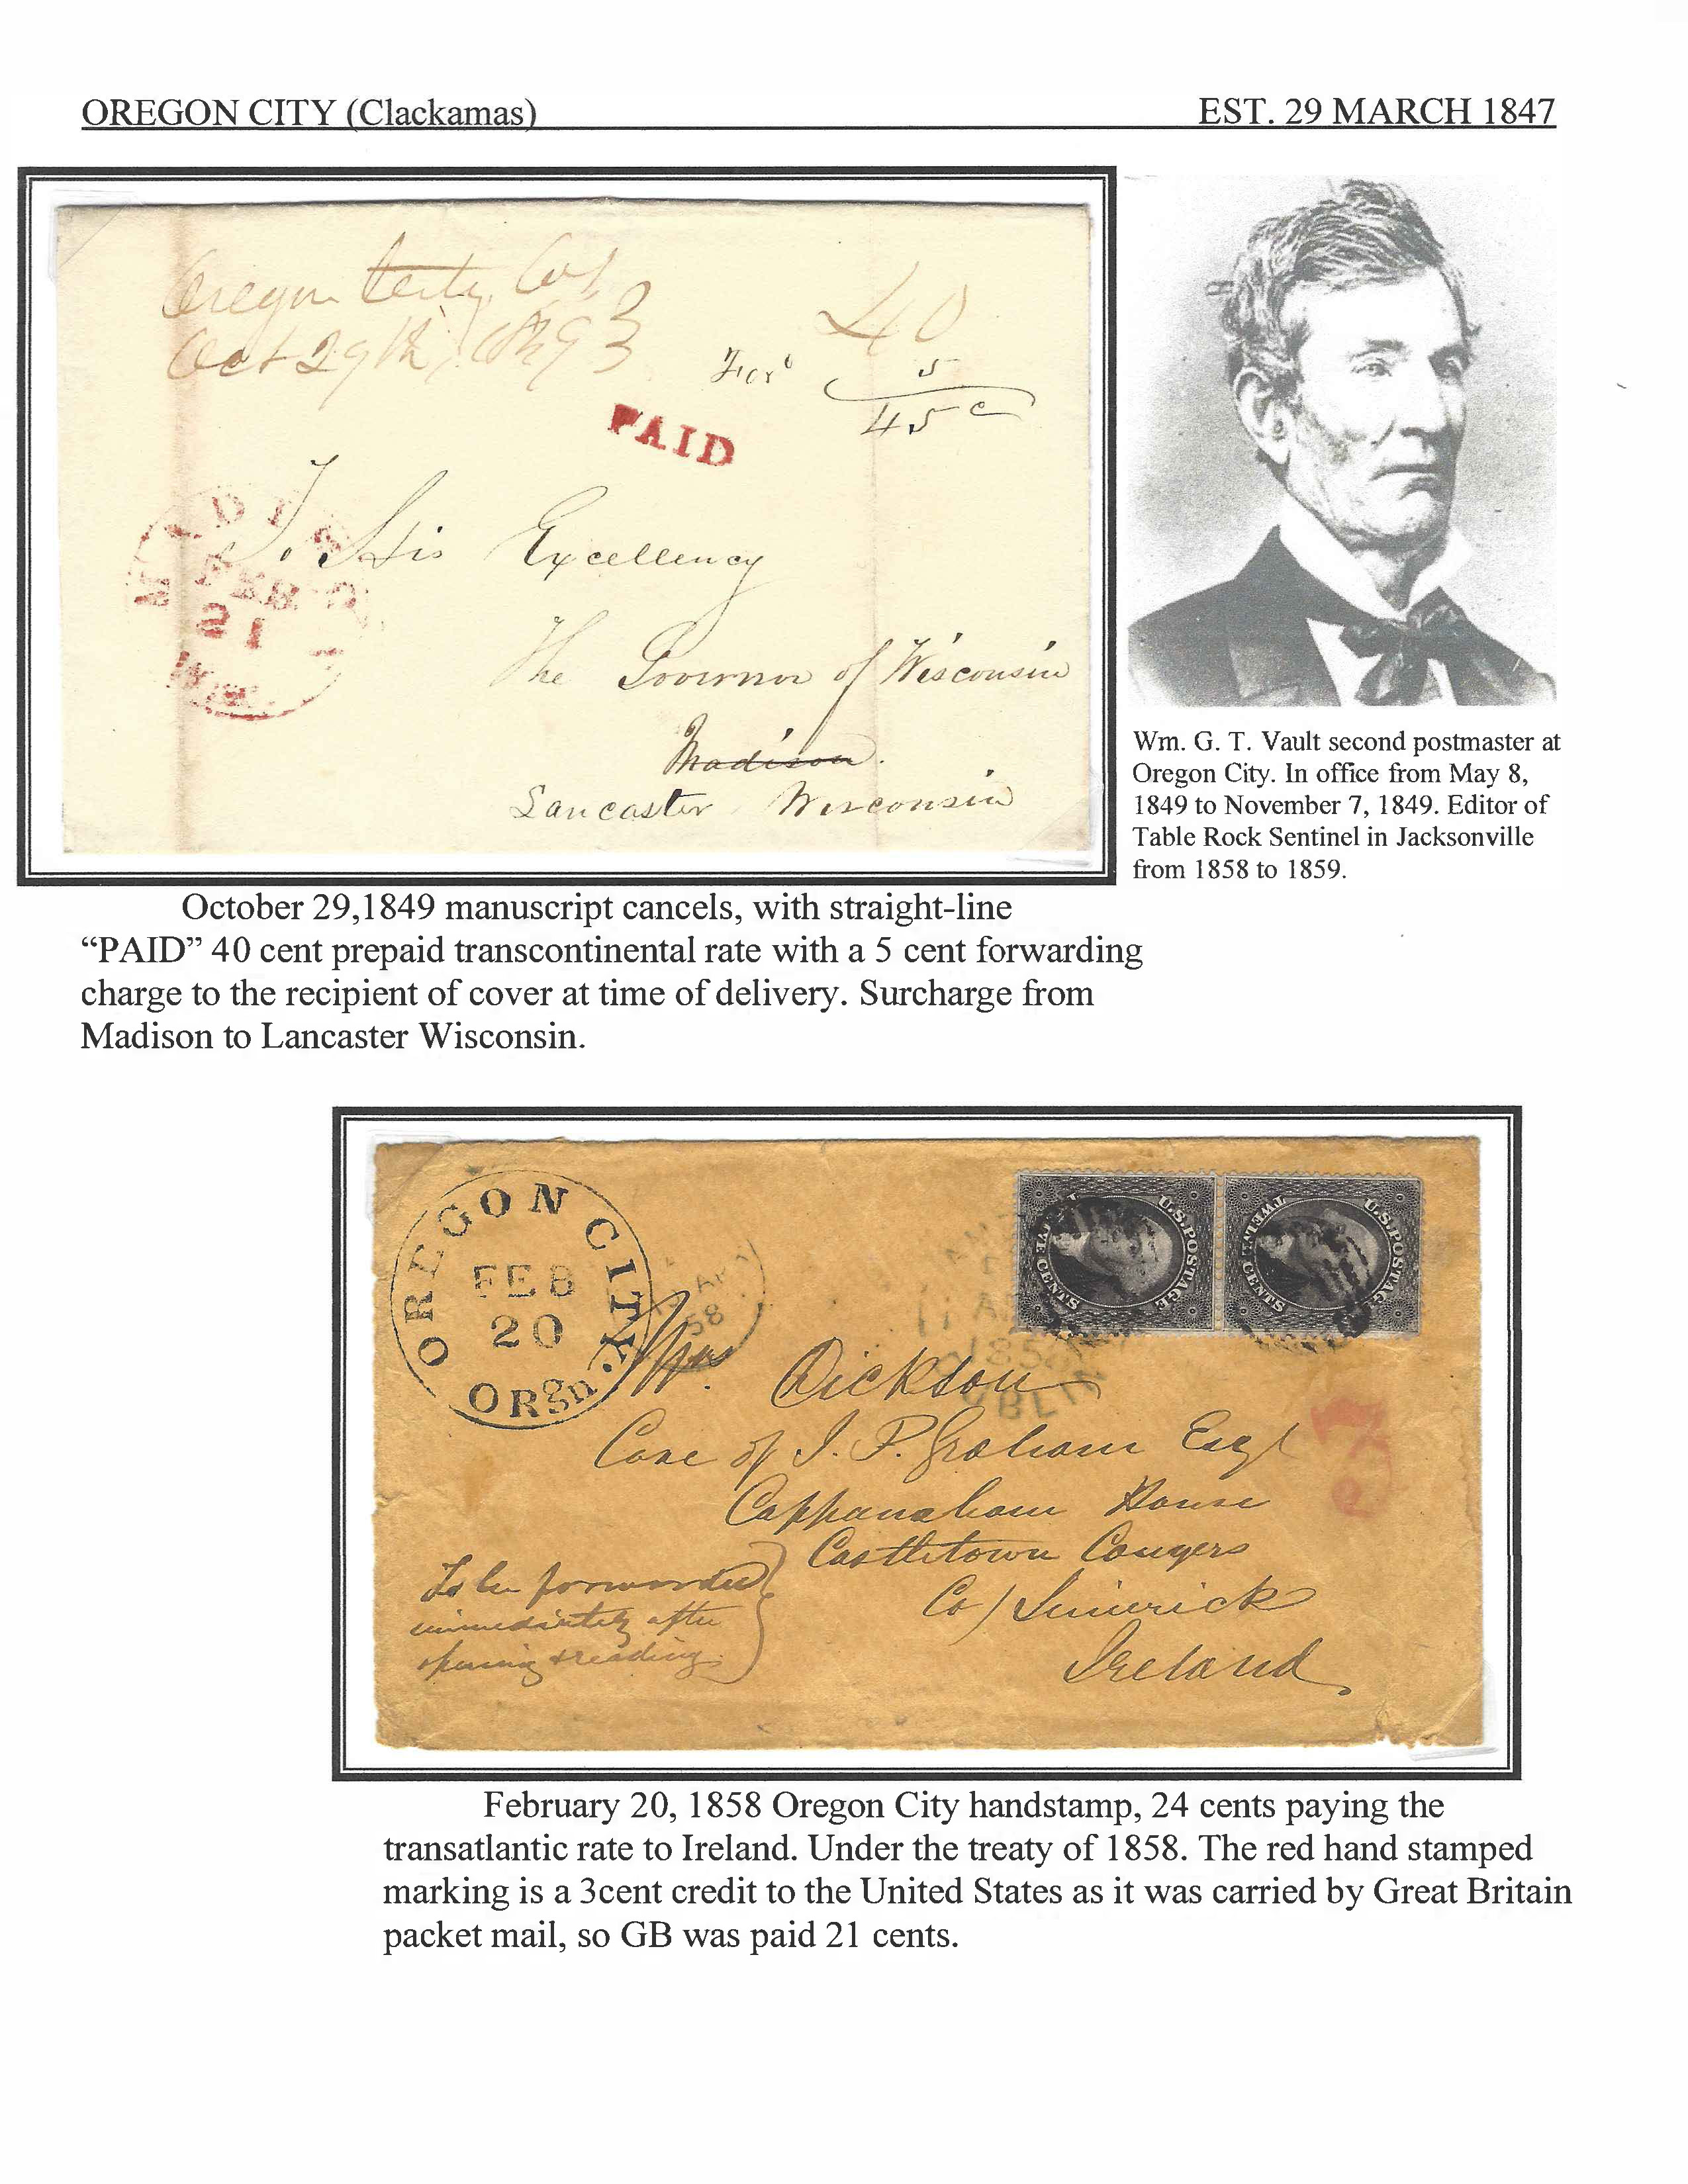 OREGON CITY (Clackamas) EST. 29 MARCH 1847
Oregon City
Oct 29th
40
5
45c
PAID
FEB
21
To His Excellency
The Governor of Wisconsin
Madison.
Lancaster Wisconsin
Wm. G. T. Vault second postmaster at
Oregon City. In office from May 8,
1849 to November 7, 1849. Editor of
Table Rock Sentinel in Jacksonville
from 1858 to 1859.
October 29,1849 manuscript cancels, with straight-line
“PAID” 40 cent prepaid transcontinental rate with a 5 cent forwarding
charge to the recipient of cover at time of delivery. Surcharge from
Madison to Lancaster Wisconsin.
OREGON CITY.
FEB
20
ORgn.
58
U.S. POSTAGE
TWELVE CENTS
U.S. POSTAGE
TWELVE CENTS
Dickson
Care of J. P. Graham Esq
House
Castletown Conyers
Co/ Limerick
Ireland
To be forwarded
immediately after
opening & reading
February 20, 1858 Oregon City handstamp, 24 cents paying the
transatlantic rate to Ireland. Under the treaty of 1858. The red hand stamped
marking is a 3cent credit to the United States as it was carried by Great Britain
packet mail, so GB was paid 21 cents.